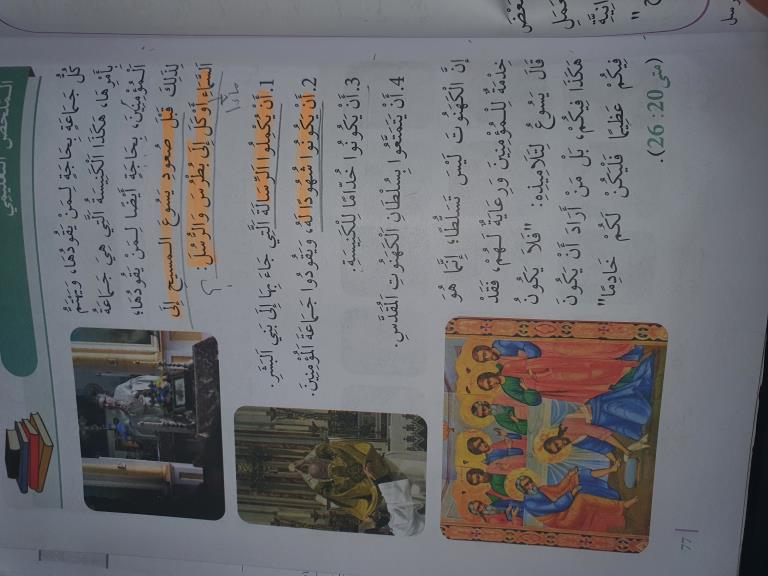 الملخص التعليمي
كُلُّ جَمَاعَةٍ بِحَاجَةٍ لِمَنْ يَقُودُهَا، وَيَهْتَمُّ
بِأَمْرِهَا، هَكَذَا الْكَنِيسَةُ الَّتِي هِيَ جَمَاعَةُ
الْمُؤْمِنِينَ، بِحَاجَةٍ أَيْضًا لِمَنْ يَقُودُهَا؛
لِذَلِكَ قَبْلَ صُعُودِ يَسُوعَ الْمَسِيحِ إِلَى
السَّمَاءِ أَوْكَلَ إِلَى بُطْرُسَ وَالرُّسُلِ: ؟
ماذا
1. أَنْ يُكْمِلُوا الرِّسَالَةَ الَّتِي جَاءَ بِهَا إِلَى بَنِي الْبَشَرِ.
2. أَنْ يَكُونُوا شُهُودًا لَهُ، وَيَقُودُوا جَمَاعَةَ الْمُؤْمِنِينَ.
3. أَنْ يَكُونُوا خُدَّامًا لِلْكَنِيسَةِ.
4. أَنْ يَتَمَتَّعُوا بِسُلْطَانِ الْكَهَنُوتِ الْمُقَدَّسِ.
إِنَّ الْكَهَنُوتَ لَيْسَ تَسَلُّطًا؛ إِنَّمَا هُوَ
خِدْمَةٌ لِلْمُؤْمِنِينَ وَرِعَايَةٌ لَهُمْ، فَقَدْ
قَالَ يَسُوعُ لِتَلَامِيذِهِ: "فَلَا يَكُونُ
هَكَذَا فِيكُمْ، بَلْ مَنْ أَرَادَ أَنْ يَكُونَ
فِيكُمْ عَظِيمًا فَلْيَكُنْ لَكُمْ خَادِمًا"
(متى 20: 26).
77